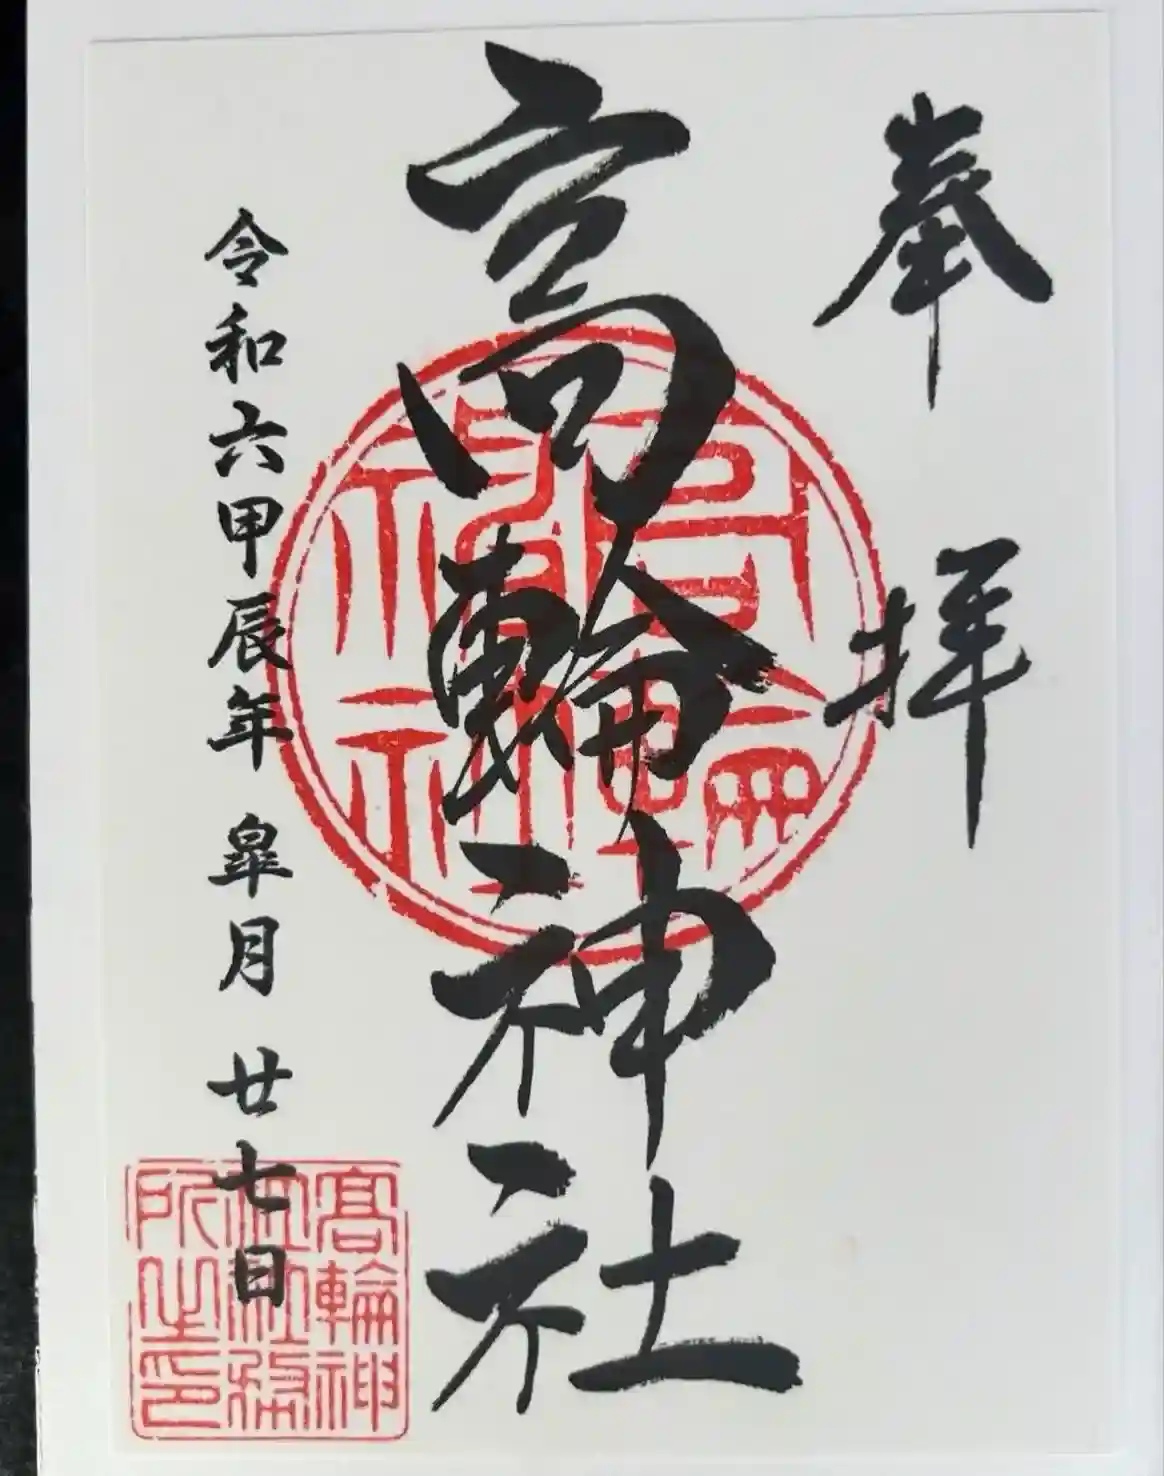 奉拝
高輪神社
令和六甲辰年 皐月 廿七日
高輪神社
高輪神
社社務
所之印